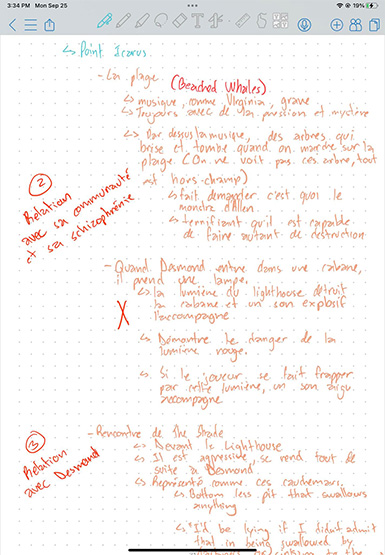 3:34 PM Mon Sep 25
19%
↳ Point Icarus
- La plage (Beached Whales)
↳ musique, comme Virginia, grave
↳ Toujours avec de la pression et mystère
↳ Par dessus la musique, des arbres qui
brise et tombe quand on marche sur la
plage. (On ne voit pas ces arbres, tout
est hors-champ)
↳ fait demander c'est quoi le
monstre d'Allen
↳ terrifiant qu'il est capable
de faire autant de destruction
2
Relation
avec sa communauté
et sa schizophrénie
- Quand Desmond entre dans une cabane,
il prend une lampe.
↳ la lumière du lighthouse détruit
la cabane et un son explosif
l'accompagne
X
↳ Démontre le danger de la
lumière rouge.
↳ Si le joueur se fait frapper
par cette lumière, un son aigu
accompagne
3
Relation
avec Desmond
- Rencontre de The Shade
↳ Devant le Lighthouse
↳ Il est aggressive, se rend tout de
suite à Desmond
↳ Représenté comme ces cauchemars.
↳ Bottom less pit that swallows
anything
↳ "I'd be lying if I didn't admit
that in being swallowed by